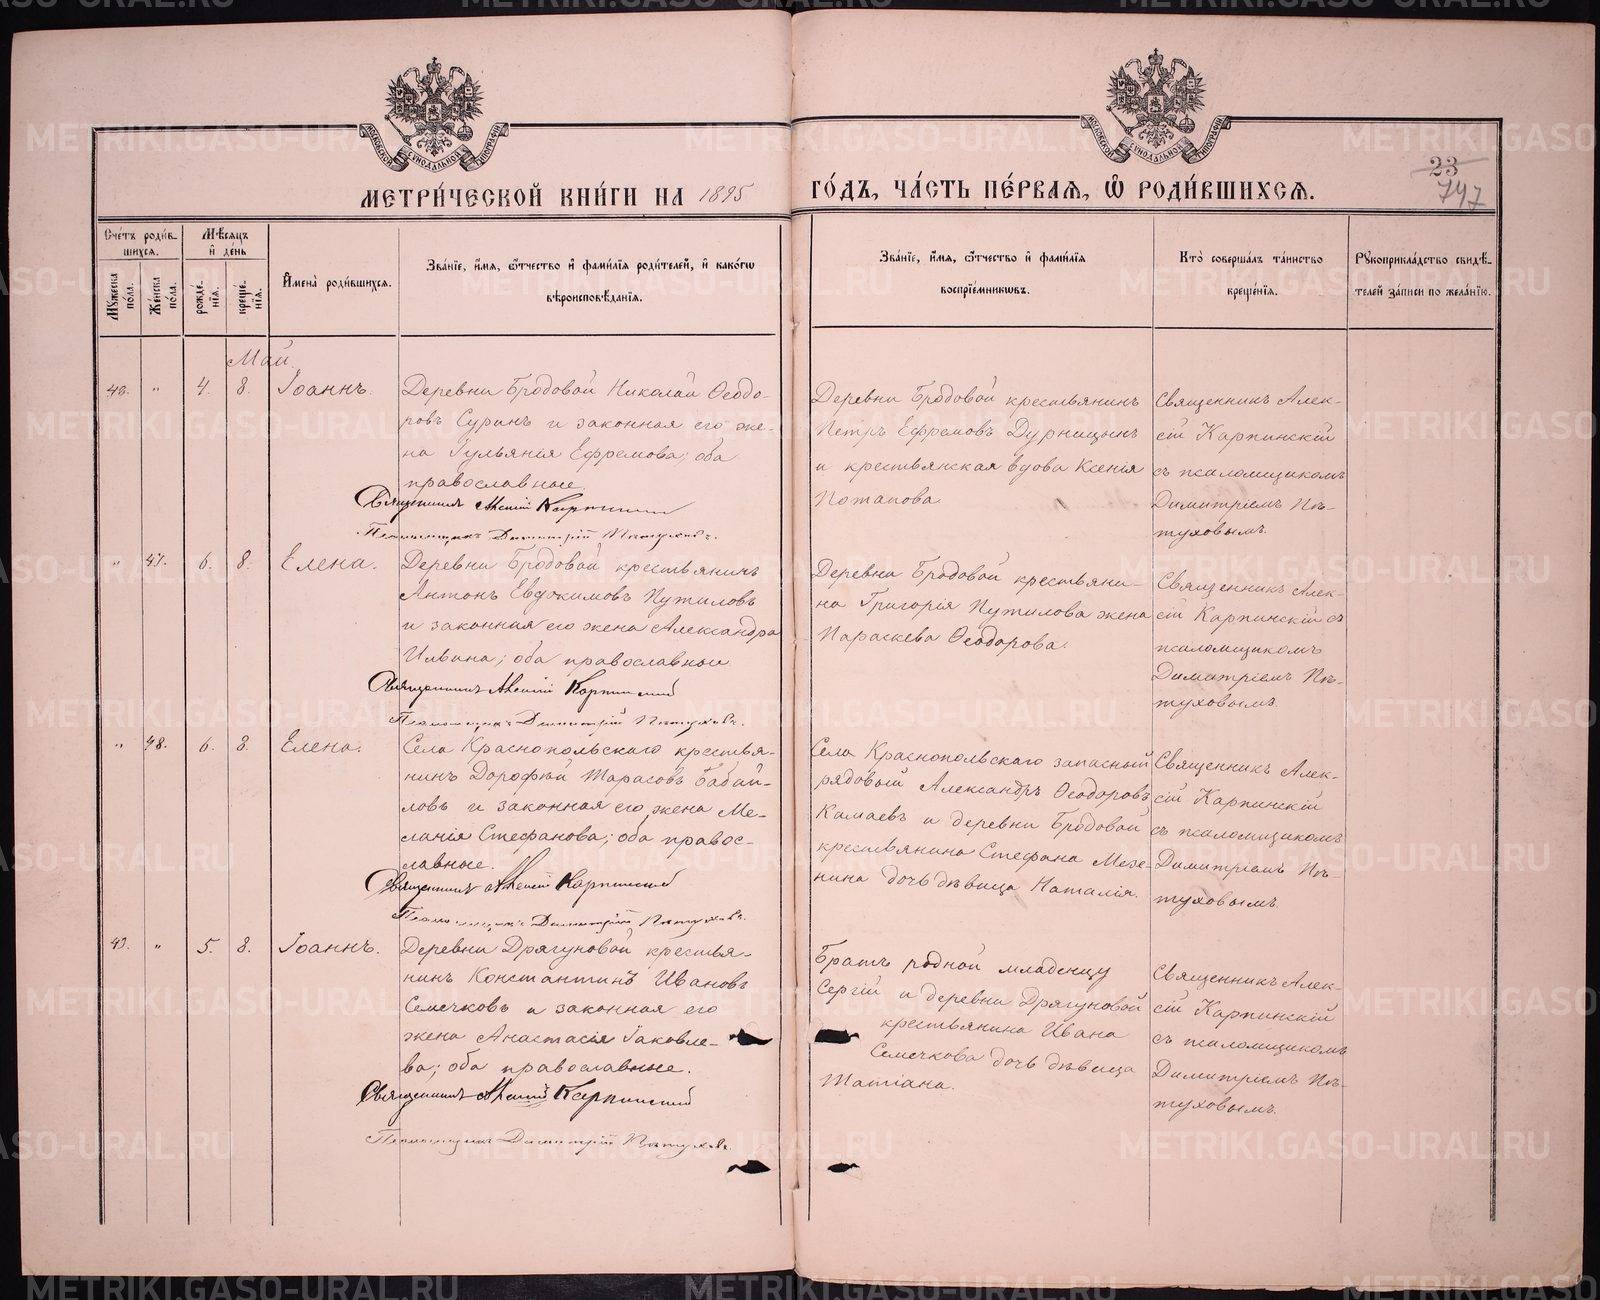 МОСКОВСКОЙ СѴНОДАЛЬНОЙ ТИПОГРАФІИ
МОСКОВСКОЙ СѴНОДАЛЬНОЙ ТИПОГРАФІИ
23
747
МЕТРИ́ЧЕСКОЙ КНИ́ГИ НА 1895 ГО́ДЪ, ЧА́СТЬ ПЕ́РВАЯ, Ѡ РОДИ́ВШИХСЯ.
Сче́тъ роди́в-
шихся.
Му́жеска по́ла.
Же́нска по́ла.
Мѣ́сяцъ
и́ де́нь
рожде́-
нїя.
креще́-
нїя.
И́мена̀ роди́вшихся.
Зва́нїе, и́мя, ѻ҆́тчество и҆ фами́лїя роди́телей, и҆ како́гѡ
вѣроисповѣ́данїя.
Зва́нїе, и́мя, ѻ҆́тчество и҆ фами́лїя
воспрїе́мникѡвъ.
Кто̀ соверша́лъ та́инство
креще́нїя.
Рꙋкоприкла́дство свидѣ́-
телей за́писи по жела́нїю.
Май
48. " 4. 8. Іоаннъ.
Деревни Бродовой Николай Ѳеодо-
ровъ Суринъ и законная его же-
на Гульянія Ефремова; оба
православные.
Священникъ Алексій Карпинскій
Псаломщикъ Димитрій Пѣтуховъ.
Деревни Бродовой крестьянинъ
Петръ Ефремовъ Дурницынъ
и крестьянская вдова Ксенія
Потапова
Священникъ Алек-
сій Карпинскій
съ псаломщикомъ
Димитріемъ Пѣ-
туховымъ.
" 47. 6. 8. Елена.
Деревни Бродовой крестьянинъ
Антонъ Евдокимовъ Путиловъ
и законная его жена Александра
Ильина; оба православные
Священникъ Алексій Карпинскій
Псаломщикъ Димитрій Пѣтуховъ.
Деревни Бродовой крестьяни-
на Григорія Путилова жена
Параскева Ѳеодорова.
Священникъ Алек-
сій Карпинскій съ
псаломщикомъ
Димитріемъ Пѣ-
туховымъ.
" 48. 6. 8. Елена.
Села Краснопольскаго крестья-
нинъ Дорофѣй Тарасовъ Бабай-
ловъ и законная его жена Ме-
ланія Стефанова; оба правос-
лавные.
Священникъ Алексій Карпинскій
Псаломщикъ Димитрій Пѣтуховъ.
Села Краснопольскаго запасный
рядовый Александръ Ѳеодоровъ
Камаевъ и деревни Бродовой
крестьянина Стефана Мезе-
нина дочь дѣвица Наталія.
Священникъ Алек-
сій Карпинскій
съ псаломщикомъ
Димитріемъ Пѣ-
туховымъ.
49. " 5. 8. Іоаннъ.
Деревни Дрягуновой крестья-
нинъ Константинъ Ивановъ
Семечковъ и законная его
жена Анастасія Іаковле-
ва; оба православные.
Священникъ Алексій Карпинскій
Псаломщикъ Димитрій Пѣтуховъ.
Братъ родной младенцу
Сергій и деревни Дрягуновой
крестьянина Ивана
Семечкова дочь дѣвица
Татіана.
Священникъ Алек-
сій Карпинскій
съ псаломщикомъ
Димитріемъ Пѣ-
туховымъ.
METRIKI.GASO-URAL.RU